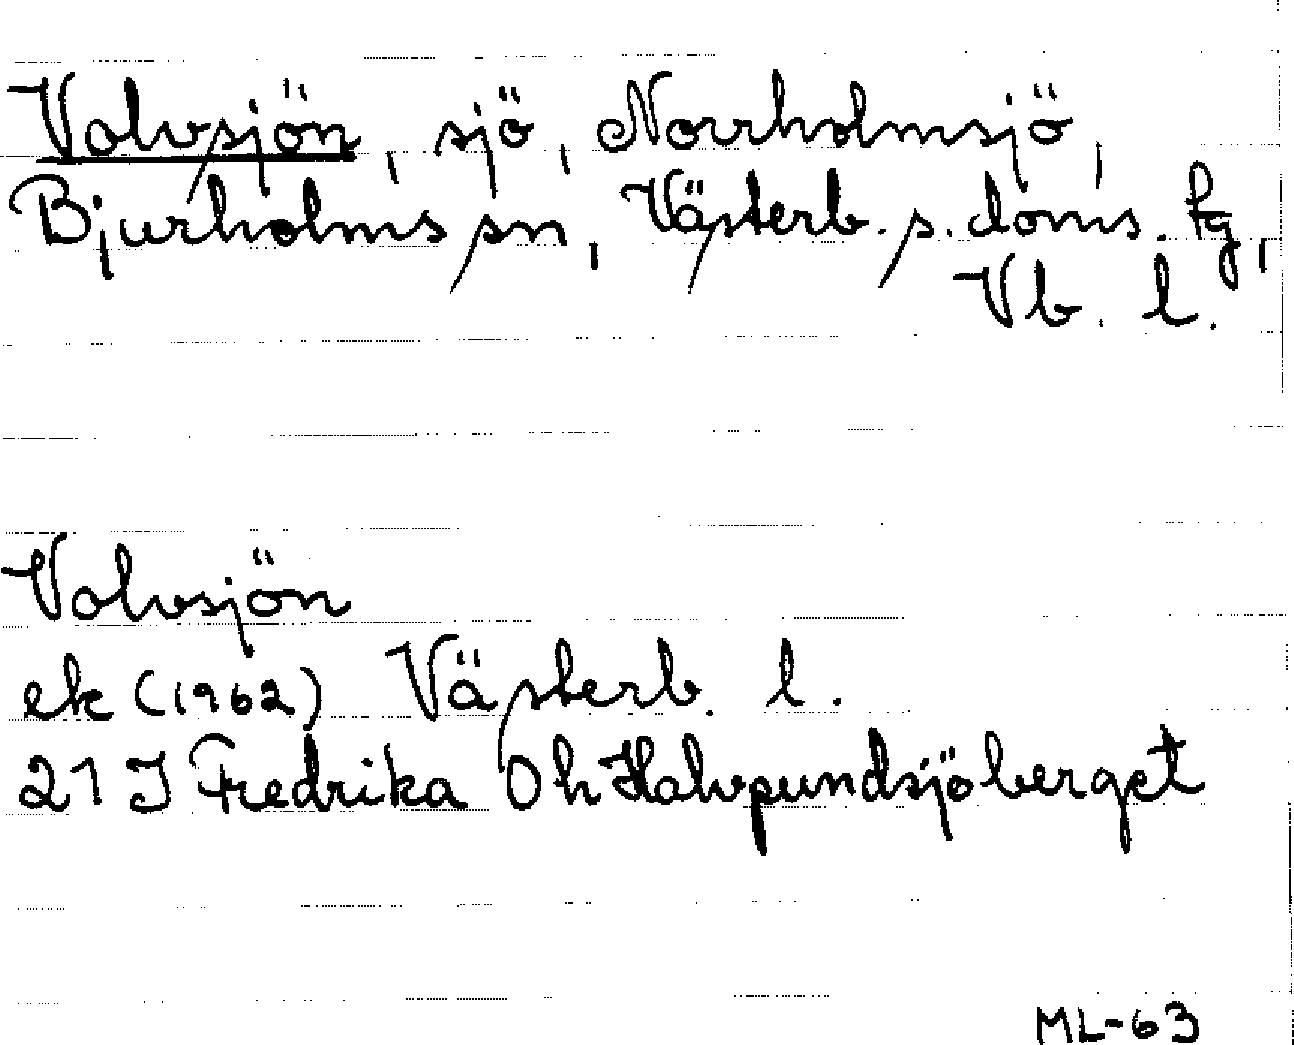 Valvsjön, sjö, Norrholmsjö,
Bjurholms sn, Västerb. s. doms. fg,
Vb. l.
Valvsjön
ek (1962) Västerb. l.
21 J Fredrika 0 h Halvpundsjöberget
ML-63